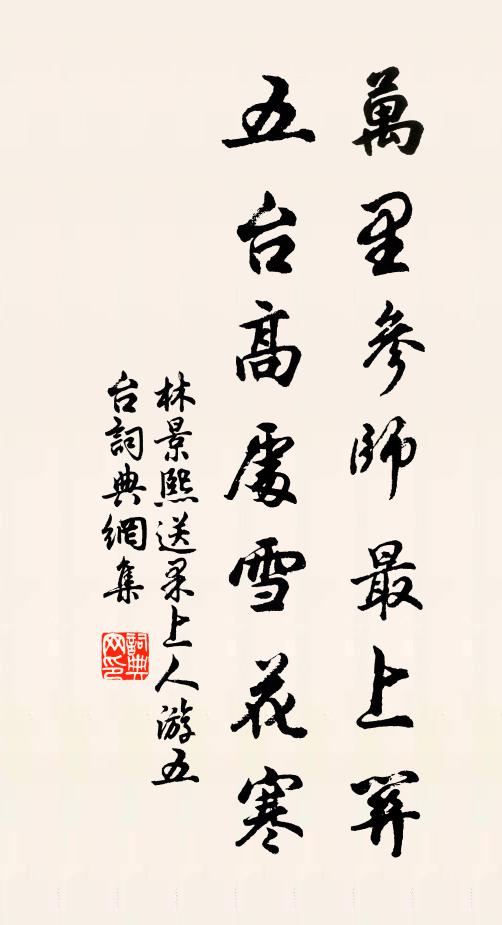 萬里參師最上關
五台高處雪花寒
林景熙送果上人游五
台詞典網集
詞典
网印